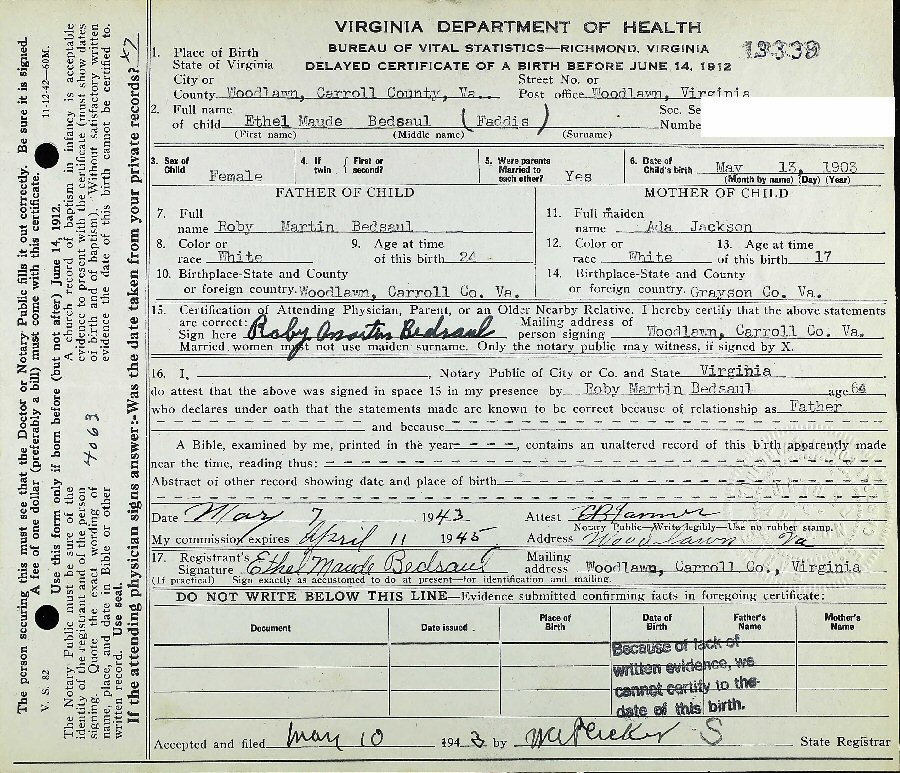 VIRGINIA DEPARTMENT OF HEALTH
BUREAU OF VITAL STATISTICS—RICHMOND, VIRGINIA
DELAYED CERTIFICATE OF A BIRTH BEFORE JUNE 14, 1912
13339
1. Place of Birth
State of Virginia
City or Street No. or
County Woodlawn, Carroll County, Va. Post office Woodlawn, Virginia
2. Full name Soc. Se
of child Ethel Maude Bedsaul (Faddis) Numbe
(First name) (Middle name) (Surname)
3. Sex of Child Female 4. If twin { First or second? 5. Were parents Married to each other? Yes 6. Date of Child's birth May 13, 1903
(Month by name) (Day) (Year)
FATHER OF CHILD MOTHER OF CHILD
7. Full name Roby Martin Bedsaul 11. Full maiden name Ada Jackson
8. Color or race White 9. Age at time of this birth 24 12. Color or race White 13. Age at time of this birth 17
10. Birthplace-State and County 14. Birthplace-State and County
or foreign country. Woodlawn, Carroll Co. Va. or foreign country. Grayson Co. Va.
15. Certification of Attending Physician, Parent, or an Older Nearby Relative. I hereby certify that the above statements
are correct: Mailing address of
Sign here Roby Martin Bedsaul person signing Woodlawn, Carroll Co. Va.
Married women must not use maiden surname. Only the notary public may witness, if signed by X.
16. I, , Notary Public of City or Co. and State Virginia
do attest that the above was signed in space 15 in my presence by Roby Martin Bedsaul age 64
who declares under oath that the statements made are known to be correct because of relationship as Father
and because
A Bible, examined by me, printed in the year - - - -, contains an unaltered record of this birth apparently made
near the time, reading thus:
Abstract of other record showing date and place of birth
Date May 7 1943 Attest
Notary Public—Write legibly—Use no rubber stamp.
My commission expires April 11 1945 Address Woodlawn Va
17. Registrant's Mailing
Signature Ethel Maude Bedsaul address Woodlawn, Carroll Co., Virginia
(If practical) Sign exactly as accustomed to do at present—for identification and mailing.
DO NOT WRITE BELOW THIS LINE—Evidence submitted confirming facts in foregoing certificate:
Document Date issued Place of Birth Date of Birth Father's Name Mother's Name
Because of lack of
written evidence, we
cannot certify to the
date of this birth.
Accepted and filed May 10 1943 by W A Plecker S State Registrar
The person securing this must see that the Doctor or Notary Public fills it out correctly. Be sure it is signed.
A fee of one dollar (preferably a bill) must come with this certificate.
V. S. 82 11-12-42—60M.
Use this form only if born before (but not after) June 14, 1912.
The Notary Public must be sure of the
identity of the registrant and of the person
signing. Quote the exact wording of
name, place, and date in Bible or other
written record. Use seal.
4663
A church record of baptism in infancy is acceptable
evidence to present with the certificate (must show dates
of birth and of baptism). Without satisfactory written
evidence the date of this birth cannot be certified to.
If the attending physician signs answer:-Was the date taken from your private records?